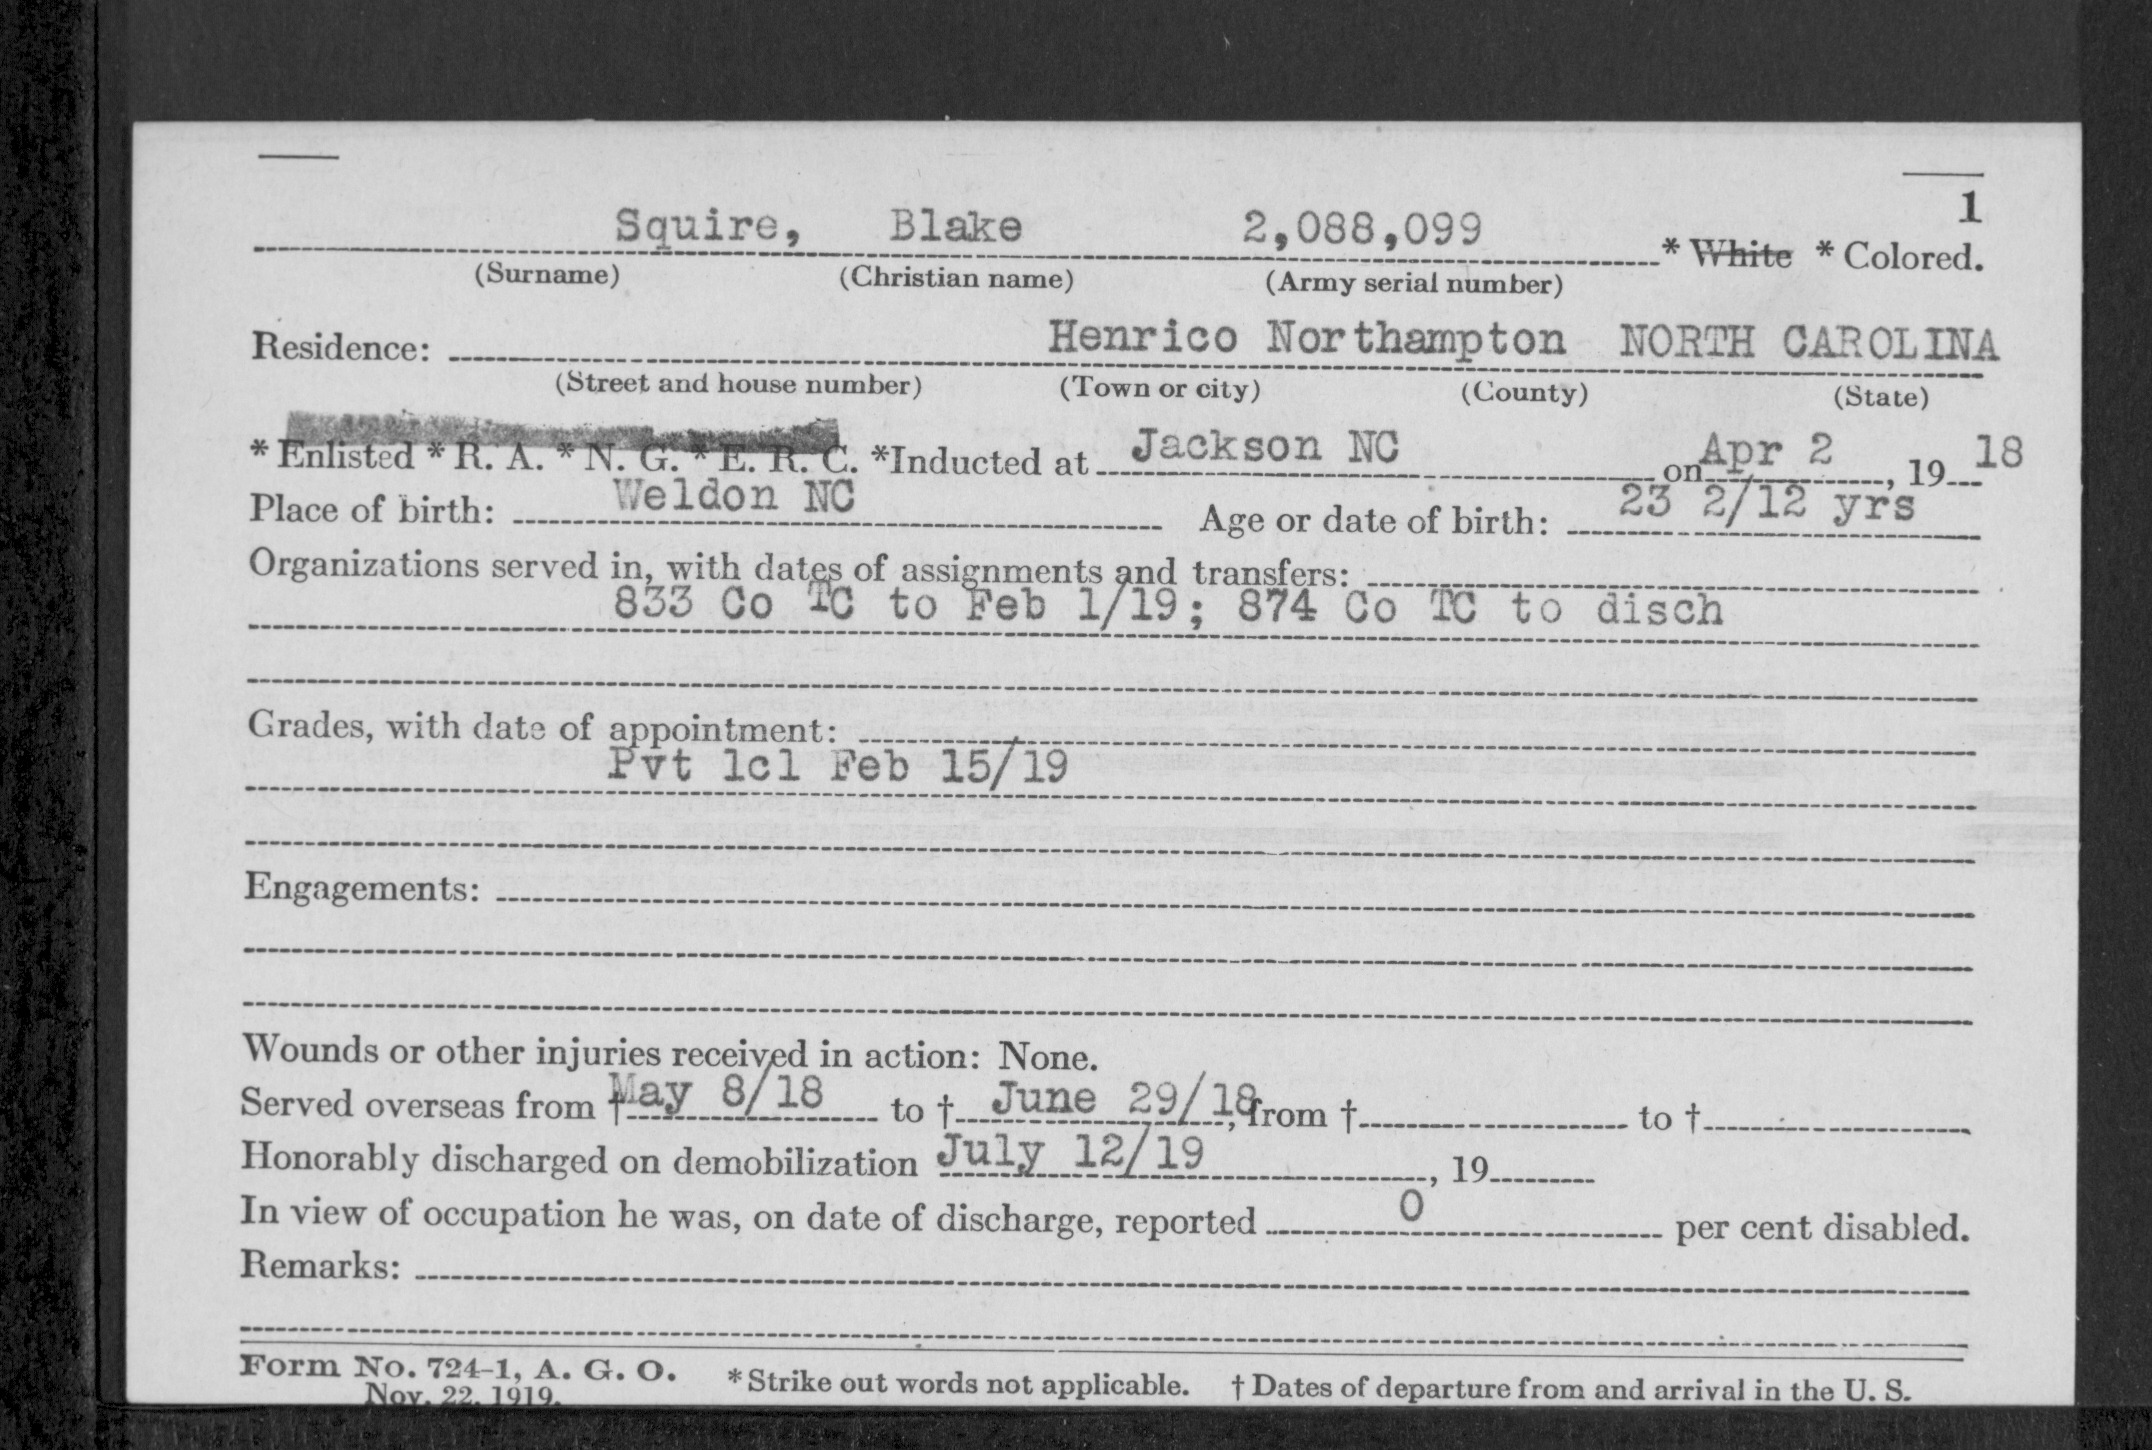 1
Squire, Blake 2,088,099 * White * Colored.
(Surname) (Christian name) (Army serial number)
Residence: Henrico Northampton NORTH CAROLINA
(Street and house number) (Town or city) (County) (State)
* Enlisted * R. A. * N. G. * E. R. C. *Inducted at Jackson NC on Apr 2, 19 18
Place of birth: Weldon NC Age or date of birth: 23 2/12 yrs
Organizations served in, with dates of assignments and transfers:
833 Co TC to Feb 1/19; 874 Co TC to disch
Grades, with date of appointment:
Pvt 1cl Feb 15/19
Engagements:
Wounds or other injuries received in action: None.
Served overseas from † May 8/18 to † June 29/18, from † to †
Honorably discharged on demobilization July 12/19, 19
In view of occupation he was, on date of discharge, reported 0 per cent disabled.
Remarks:
Form No. 724-1, A. G. O. * Strike out words not applicable. † Dates of departure from and arrival in the U. S.
Nov. 22, 1919.